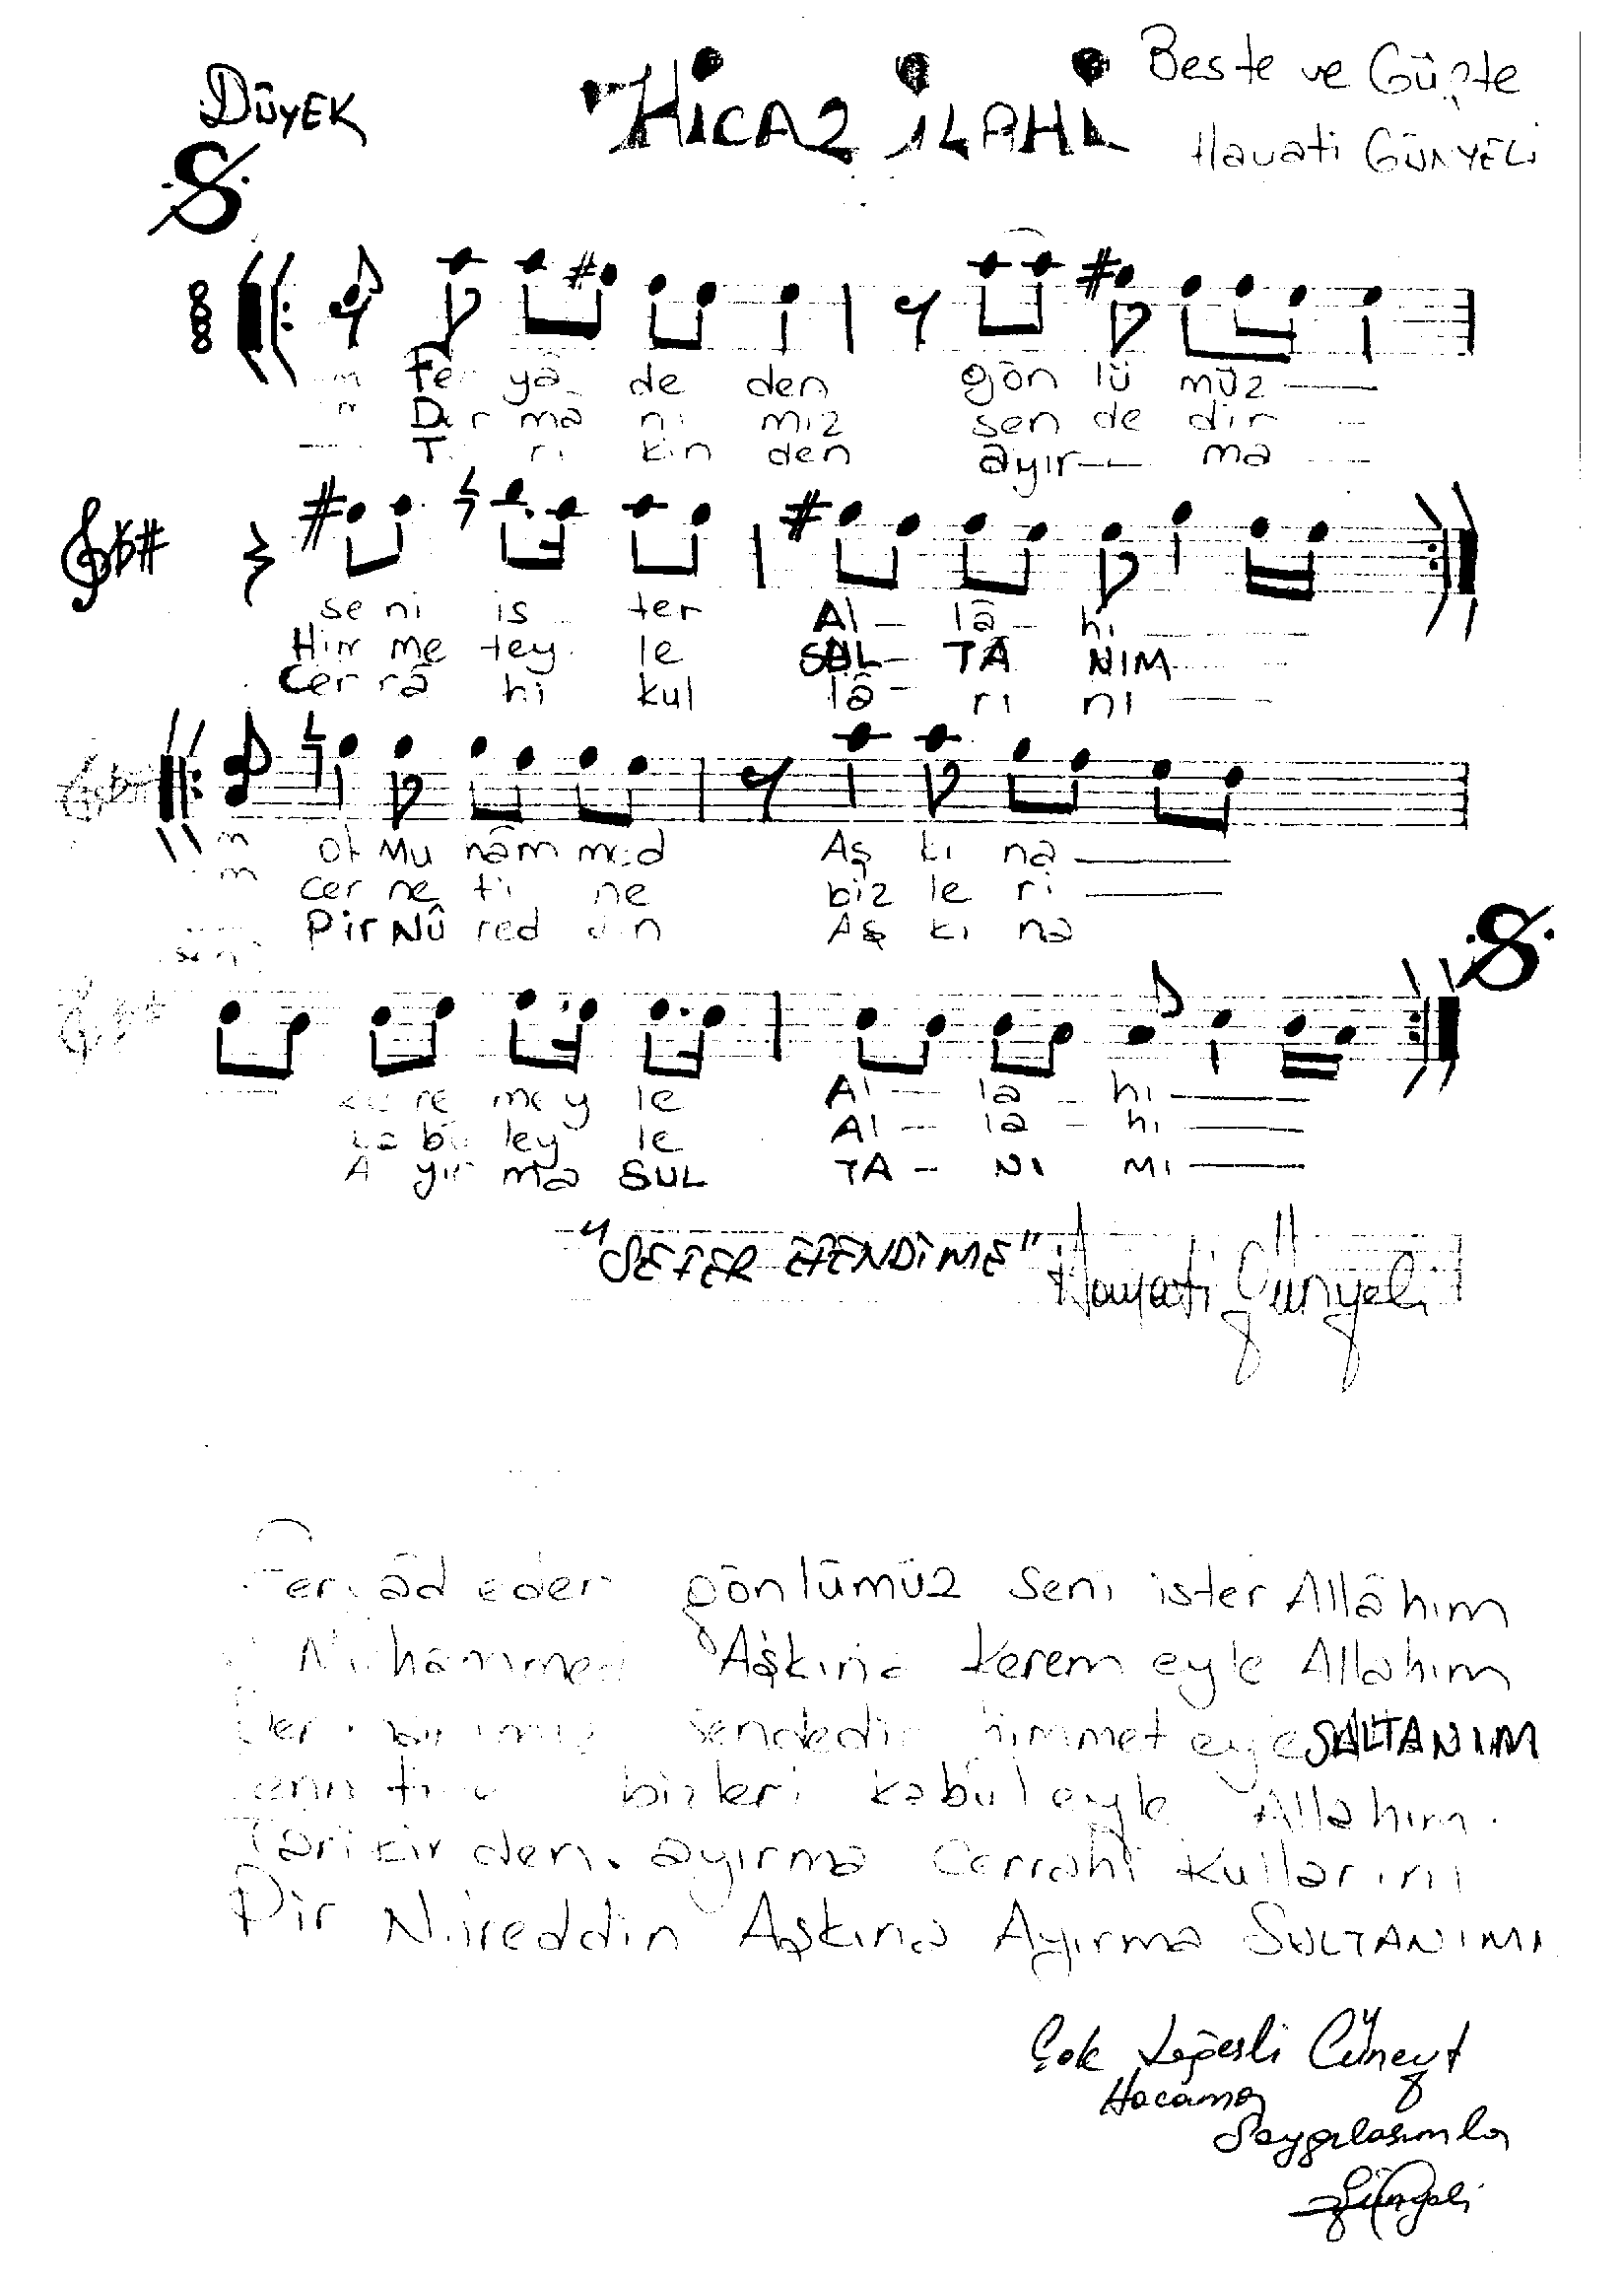 DÜYEK
HİCAZ İLAHİ
Beste ve Güfte
Hayati GÜNYELİ
8
8
m Fer yâ de den gön lü müz
m Der ma nı mız sen de dir
ri kin den ayır ma
se ni is ter Al lâ hı
Him me tey le SUL TÂ NIM
Cer râ hi kul lâ rı nı
m ol Mu hâm med Aş kı na
m cen ne ti ne biz le ri
Pir Nû red din Aş kı na
ke re mey le Al la hı
ka bu ley le Al la hı
A yır ma SUL TA NI MI
"SEFER EFENDİME" Hayati Günyeli
Feryâd eden gönlümüz Seni ister Allâhım
Muhammed Aşkına kerem eyle Allahım
Dermanımız Sendedir himmet eyle SULTANIM
bizleri kabûl eyle Allahım.
Tarikinden. ayırma Cerrahi kullarını
Pir Nureddin Aşkına Ayırma SULTANIMI
Çok Cüneyt
Hocama
Saygılarımla
Günyeli